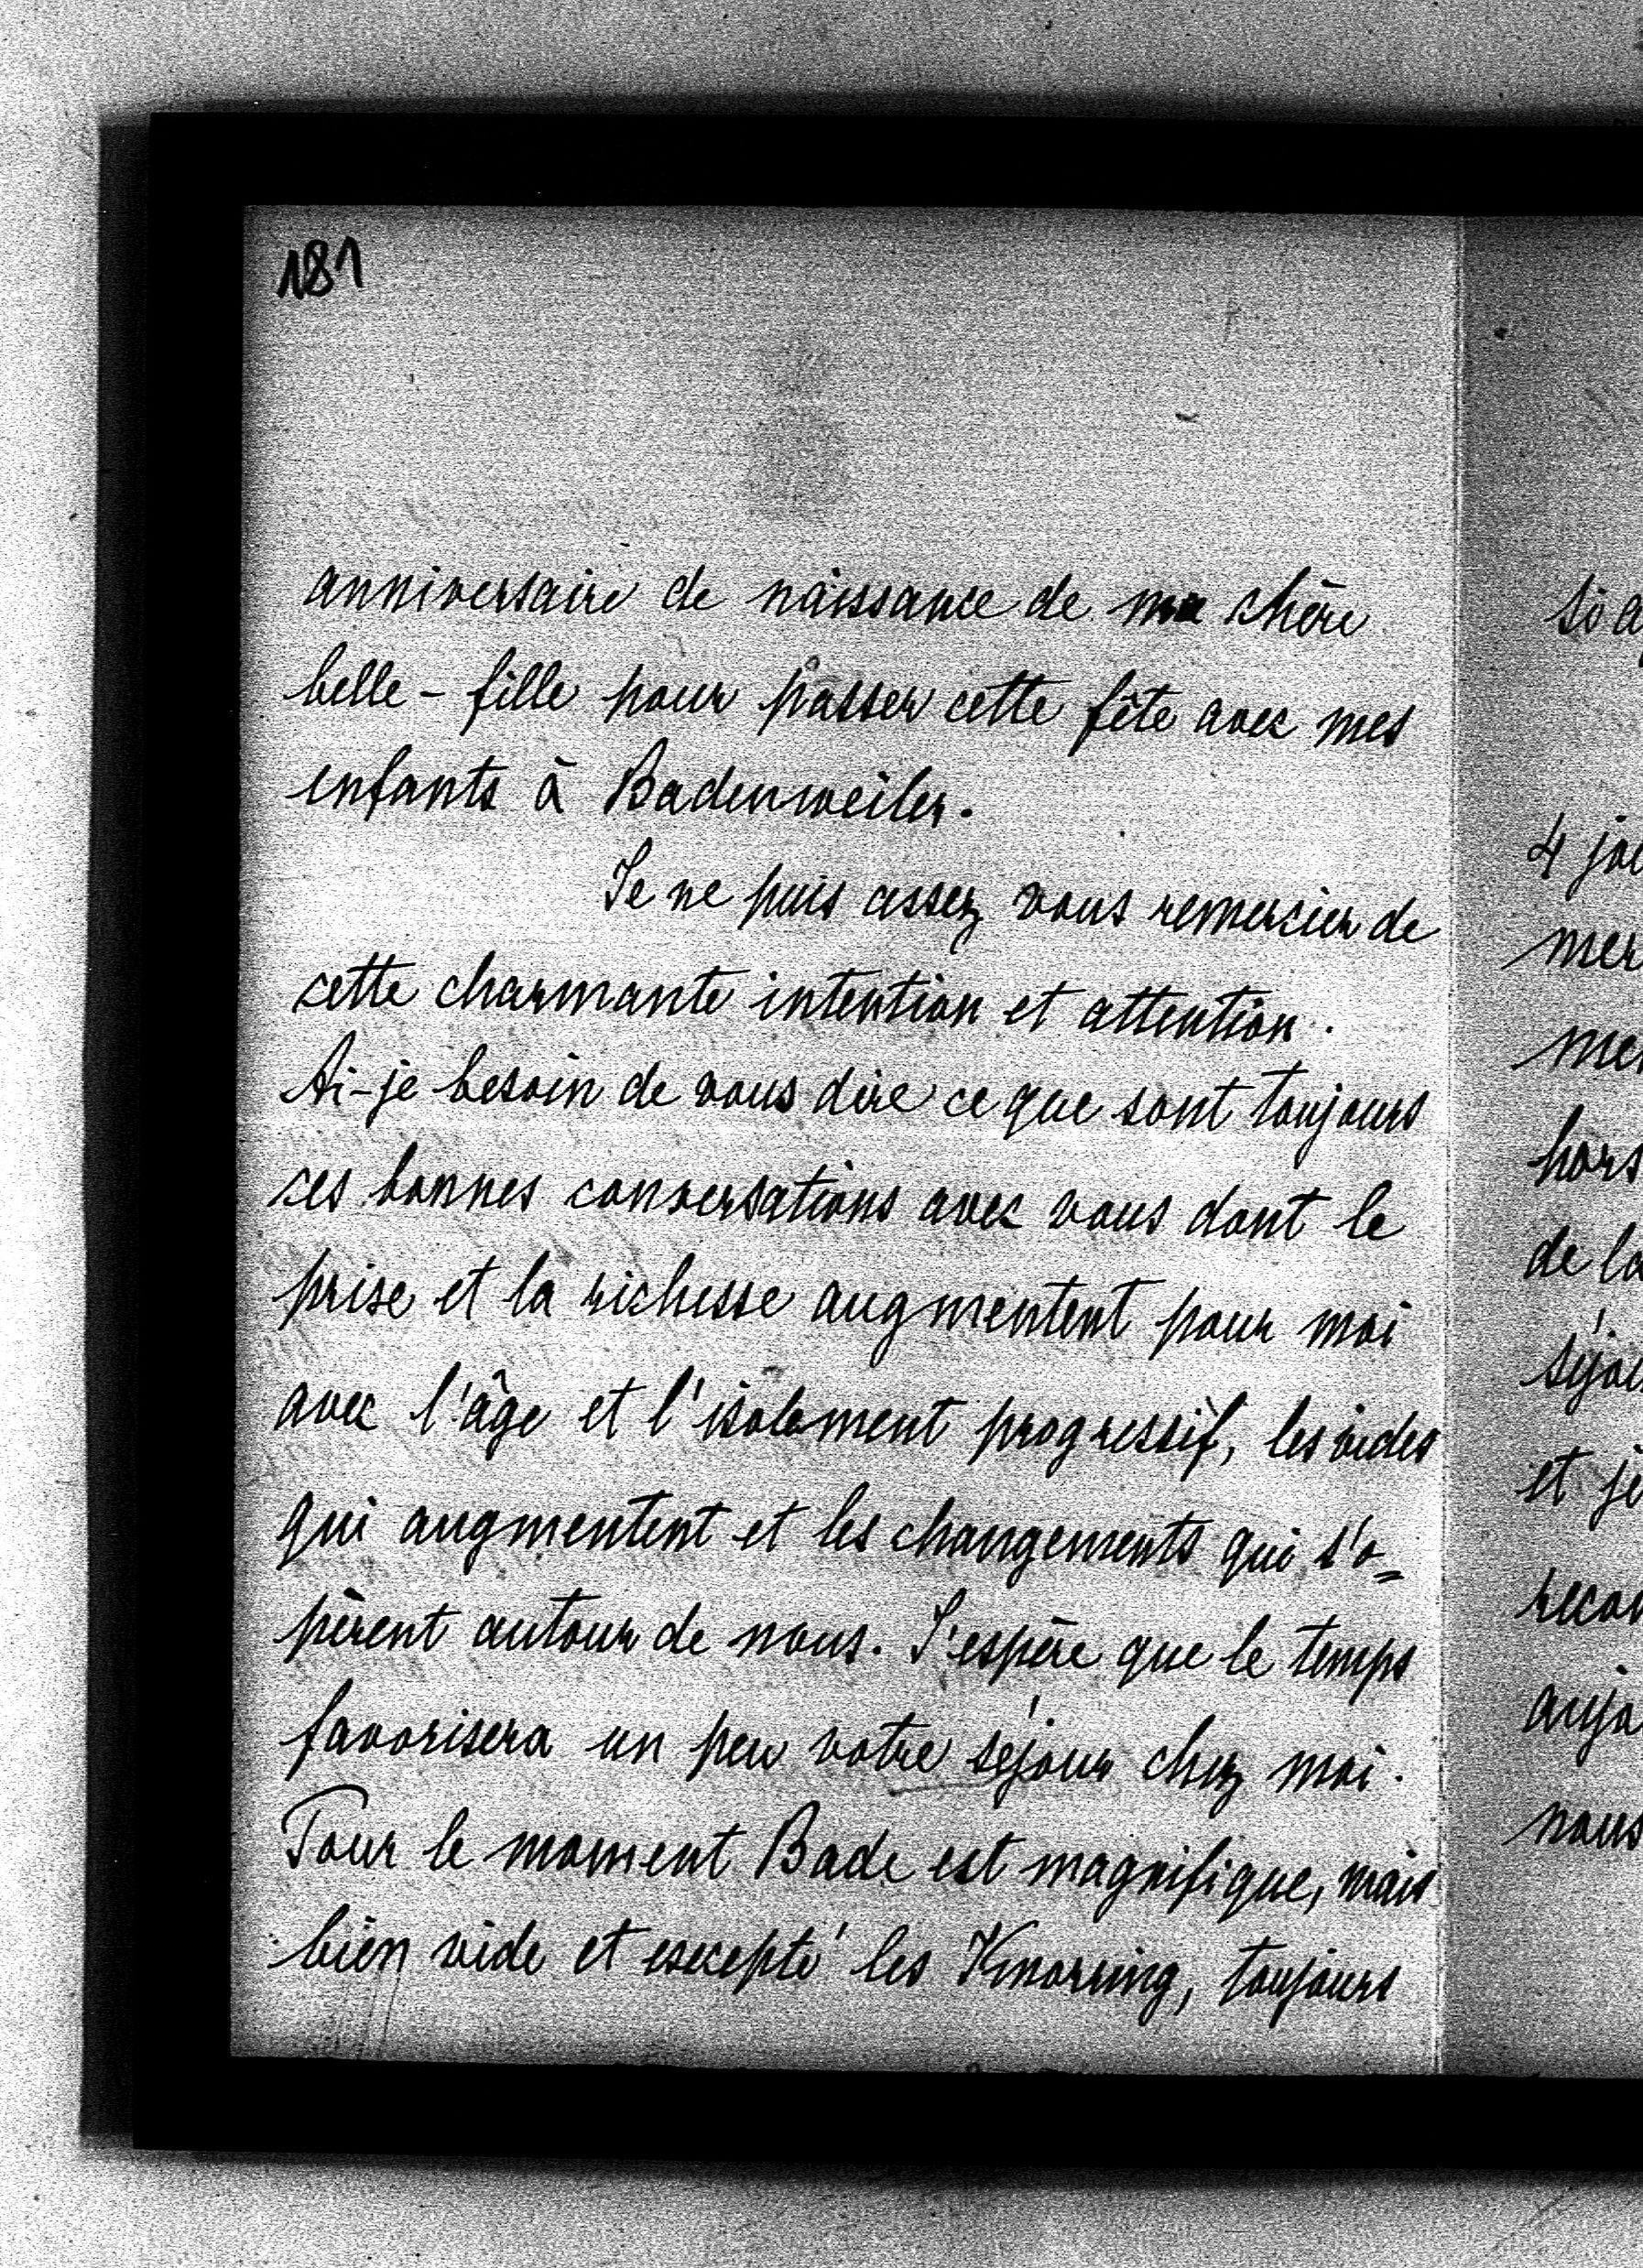 181
anniversaire de naissance de ma chère
belle-fille pour passer cette fête avec mes
enfants à Badenweiler.
Je ne puis assez vous remercier de
cette charmante intention et attention.
Ai-je besoin de vous dire ce que sont toujours
ces bonnes conversations avec vous dont le
prise et la richesse augmentent pour moi
avec l'âge et l'isolement progressif, les vides
qui augmentent et les changements qui s'o=
pèrent autour de nous. J'espère que le temps
favorisera un peu votre séjour chez moi.
Pour le moment Bade est magnifique, mais
bien vide et excepté les Knorring, toujours
4
mer
me
hors
de la
et je
nous